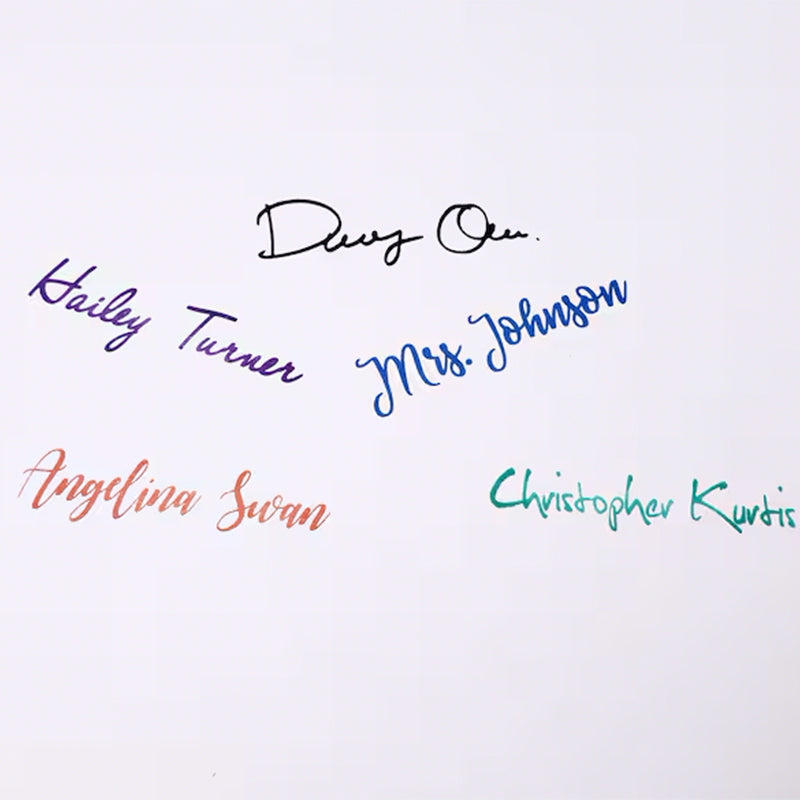 Hailey Turner
Mrs. Johnson
Angelina Swan
Christopher Kurtis